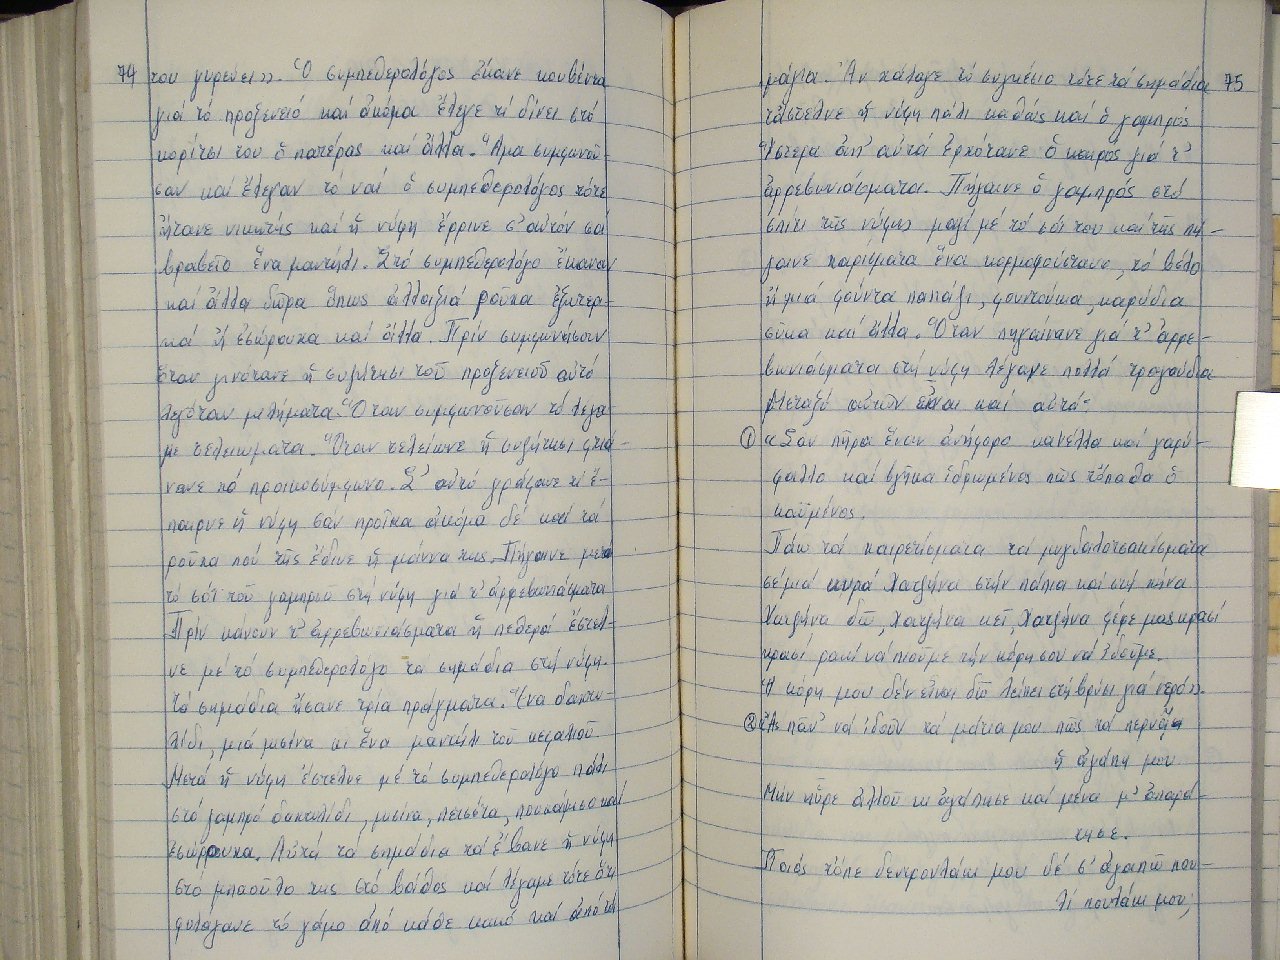 74
του γυρεύει». Ὁ συμπεθερολόγος ἔκανε κουβέντα
γιά τό προξενειό καί ἀκόμα ἔλεγε τί δίνει στό
κορίτσι του ὁ πατέρας καί ἄλλα. Ἅμα συμφωνοῦ-
σαν καί ἔλεγαν τό ναί ὁ συμπεθερολόγος τότε
ἤτανε νικητής καί ἡ νύφη ἔρρινε σ' αὐτόν σά
βραβεῖο ἕνα μαντήλι. Στό συμπεθερολόγο ἔκαναν
καί ἄλλα δῶρα ὅπως ἀλλαξιά ροῦχα ἐξωτερ-
κά ἤ ἐσώρουχα καί ἄλλα. Πρίν συμφωνήσουν
ὅταν γινότανε ἡ συζήτησι τοῦ προξενειοῦ αὐτό
λεγόταν μιλήματα. Ὅταν συμφωνοῦσαν τό λέγα
με τελειώματα. Ὅταν τελείωνε ἡ συζήτησι φτιά-
νανε τό προικοσύμφωνο. Σ' αὐτό γράφανε τί ἔ-
παιρνε ἡ νύφη σάν προῖκα ἀκόμα δέ καί τά
ροῦχα πού τῆς ἔδινε ἡ μάννα της. Πήγαινε μετά
τό σόϊ τοῦ γαμπροῦ στή νύφη γιά τ' ἀρρεβωνιάσματα
Πρίν κάνουν τ' ἀρρεβωνιάσματα ἡ πεθερά ἔστελ-
νε μέ τό συμπεθερολόγο τά σημάδια στή νύφη.
Τά σημάδια ἤσανε τρία πράγματα. Ἕνα δακτυ-
λίδι, μιά μπόλια κι ἕνα μαντήλι τοῦ κεφαλιοῦ
Μετά ἡ νύφη ἔστελνε μέ τό συμπεθερολόγο πάλι
στό γαμπρό δακτυλίδι, πετσέτα, πουκάμισο καί
ἐσώρρουχα. Αὐτά τά σημάδια τά ἔβανε ἡ νύφη
στό μπαοῦλο της στό βάθος καί λέγαμε τότε ὅτι
φυλάγανε τό γάμο ἀπό κάθε κακό καί ἀπό τά
75
μάγια. Ἄν χάλαγε τό συνοικέσιο τότε τά σημάδια
τἄστελνε ἡ νύφη πάλι καθώς καί ὁ γαμπρός
Ὕστερα ἀπ' αὐτά ἐρχότανε ὁ καιρός γιά τ'
ἀρρεβωνιάσματα. Πήγαινε ὁ γαμπρός στό
σπίτι τῆς νύφης μαζί μέ τό σόϊ του καί τῆς πή-
γαινε χαρίσματα ἕνα κορμοφούστανο, τό βέλο
ἤ μιά φούντα παπάζι, φουντούκια, καρύδια
σῦκα καί ἄλλα. Ὅταν πηγαίνανε γιά τ' ἀρρε-
βωνιάσματα στή νύφη λέγανε πολλά τραγούδια
Μεταξύ αὐτῶν εἶναι καί αὐτό:
① «Σάν πῆρα ἕναν ἀνήφορο κανέλλα καί γαρύ-
φαλλο καί βγῆκα ἱδρωμένος πῶς τὄπαθα ὁ
καϋμένος.
Πάω τά χαιρετίσματα τά μυγδαλοτσακίσματα
σέ μιά κυρά Χατζήνα στήν πάπια καί στή χήνα
Χατζήνα δῶ, Χατζήνα κεῖ, Χατζήνα φέρε μας κρασί
κρασί ρακί νά πιοῦμε τήν κόρη σου νά ἰδοῦμε.
Ἡ κόρη μου δέν εἶναι δῶ λείπει στή βρύσι γιά νερό».
② «Ἄς πᾶν' νά ἰδοῦν τά μάτια μου πῶς τά περνάει
ἡ ἀγάπη μου
Μήν ηὗρε ἀλλοῦ κι ἀγάπησε καί μένα μ' ἀπαρά-
τησε.
Ποιός τὄπε δεντρουλάκι μου δέ σ' ἀγαπῶ που-
λί πουλάκι μου;